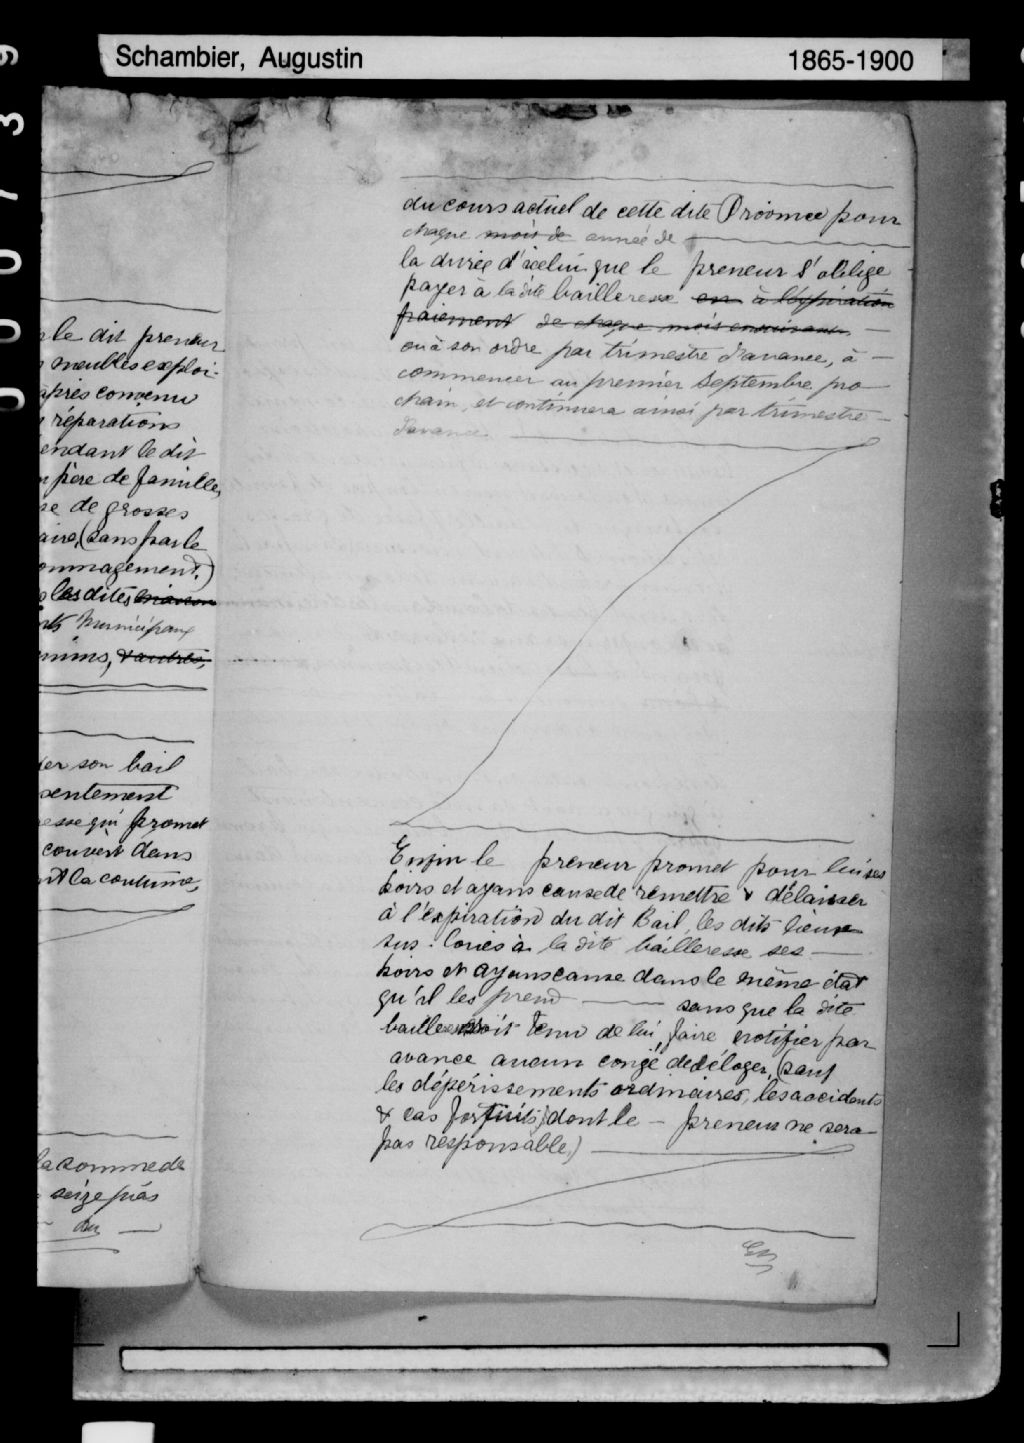 Schambier, Augustin 1865-1900
00739
le dit preneur
meubles exploi-
après convenu
réparations
endant le dit
père de famille,
de grosses
aire, (sans par le
ommagement.)
les dites
municipaux
& autres,
er son bail
sentement
esse qui promet
couvert dans
la coutume,
la somme de
seize piès
du
du cours actuel de cette dite Province pour
chaque mois de année de
la durée d'icelui que le preneur s'oblige
payer à la dite bailleresse en à l'expiration
paiement de chaque mois ensuivant
ou à son ordre par trimestre d'avance, à
commencer au premier Septembre pro-
chain, et continuera ainsi par trimestre
d'avance
Enfin le preneur promet pour lui ses
hoirs et ayans cause de remettre & délaisser
à l'expiration du dit Bail, les dits lieux
sus-loués à la dite bailleresse ses
hoirs et ayans cause dans le même état
qu'il les prend sans que la dite
bailleresse soit tenu de lui faire notifier par
avance aucun congé de déloger, (sauf
les dépérissements ordinaires, les accidents
& cas fortuits, dont le preneur ne sera
pas responsable)